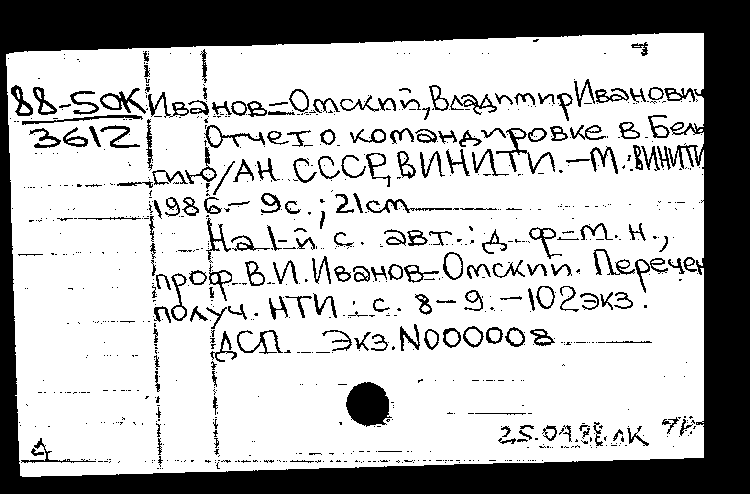 88-5ДК Иванов-Омский, Владимир Иванович
3612 Отчет о командировке в Бель
гию/АН СССР, ВИНИТИ.-М.: ВИНИТИ
1986.- 9с.; 21cm
На 1-й с. авт.: д. ф-м. н.,
проф В.И. Иванов-Омский. Перечен
получ. НТИ: с. 8-9.-102экз.
ДСП. Экз.N000008
25.04.88 лк